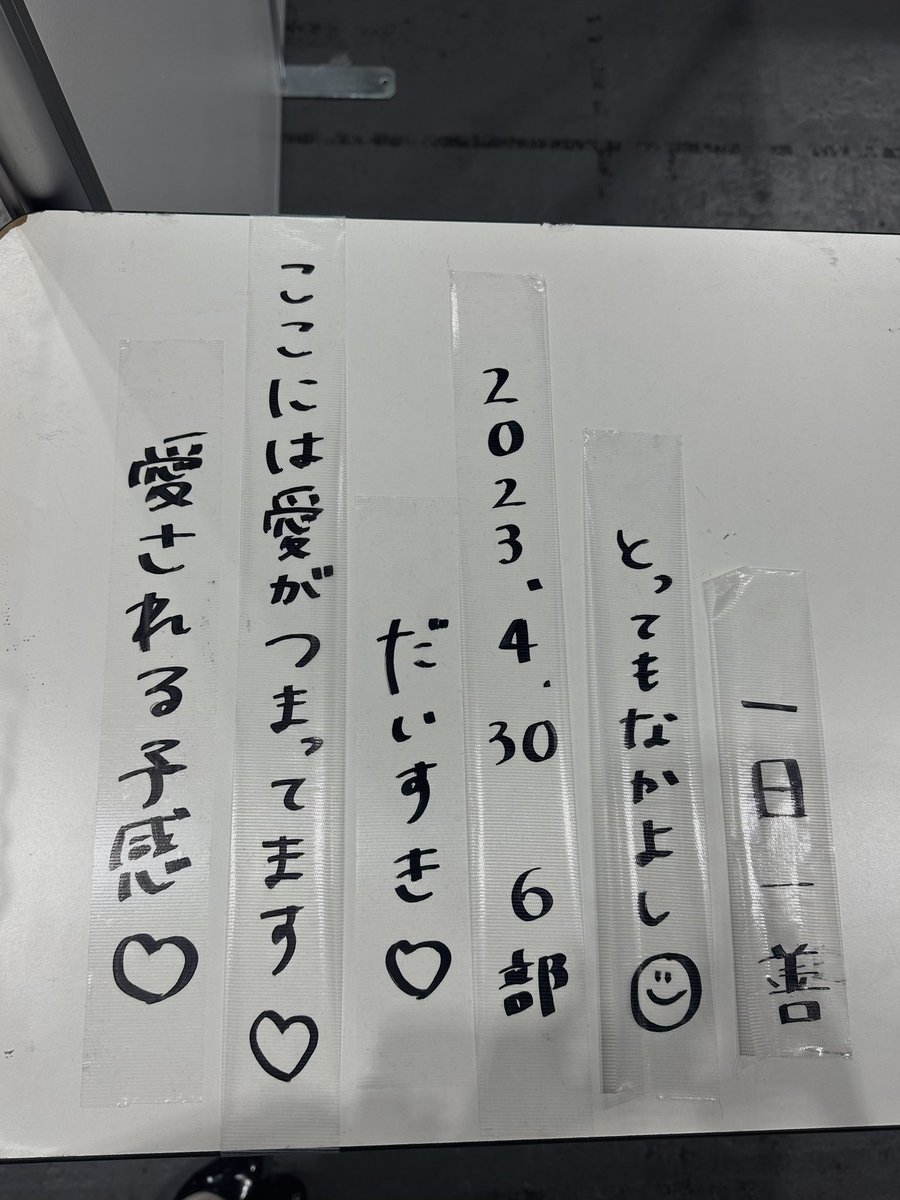 一日一善
とってもなかよし
2023.4.30 6部
だいすき♡
ここには愛がつまってます♡
愛される予感♡